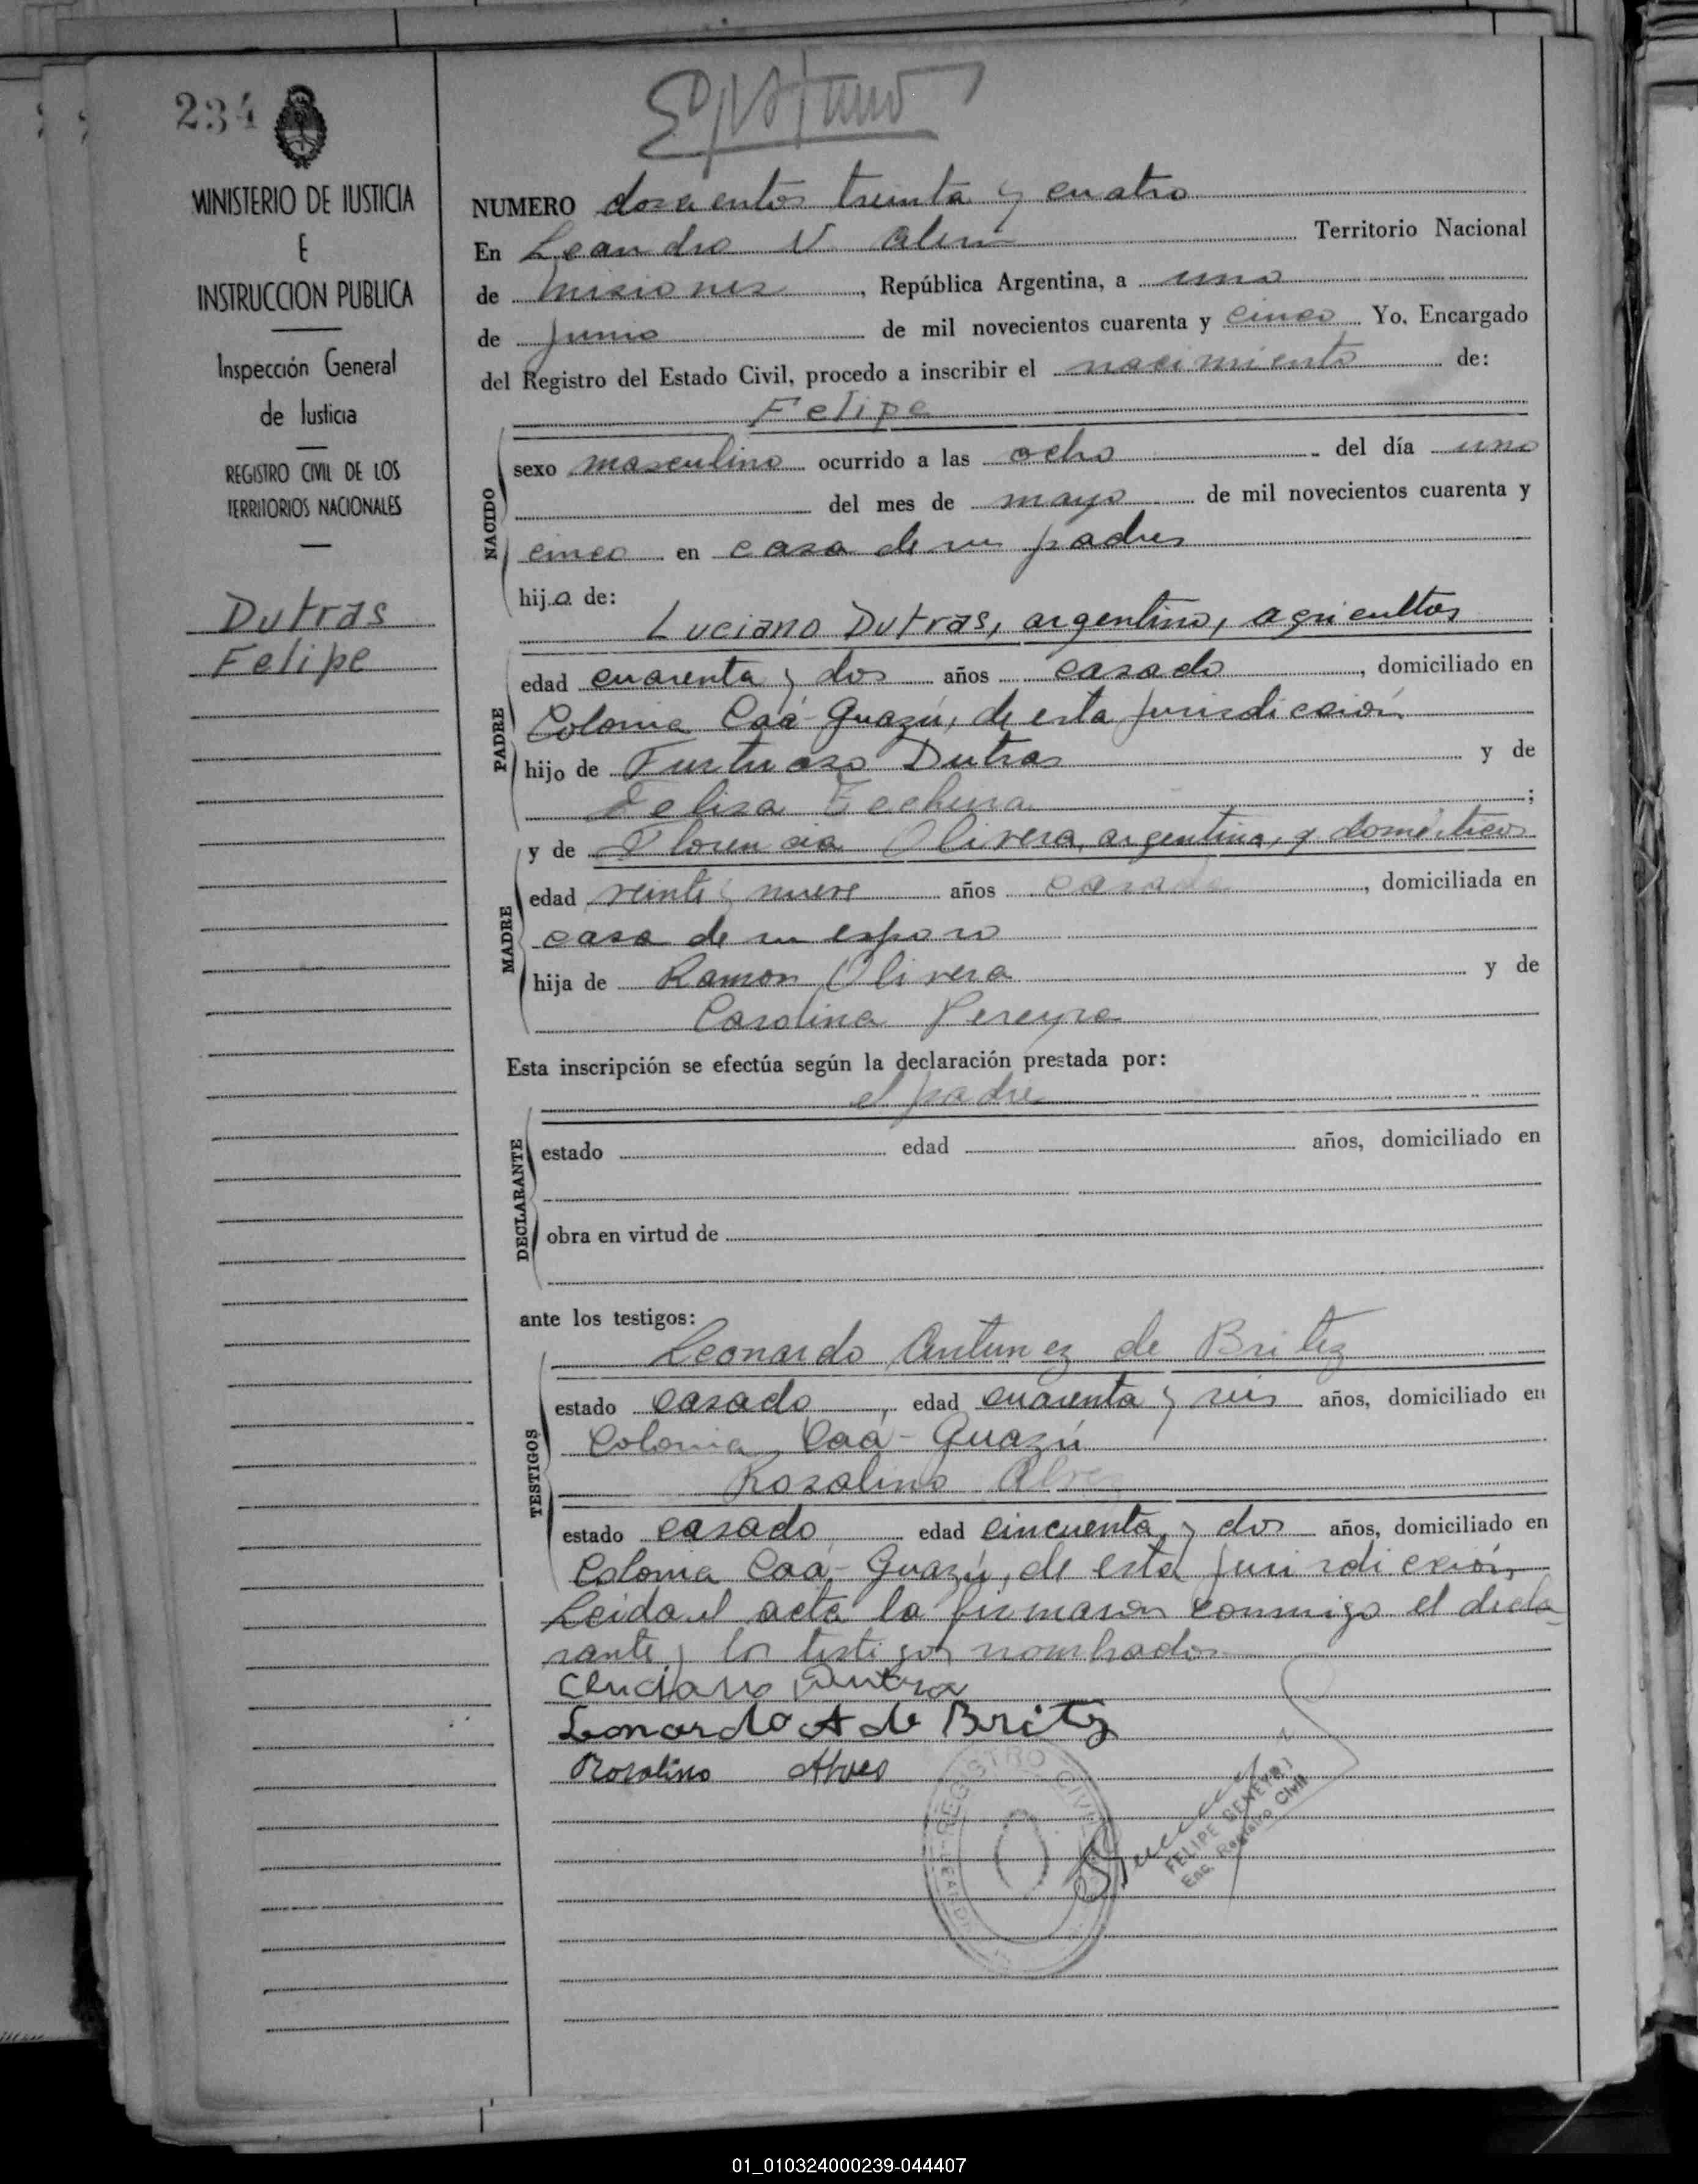 234
MINISTERIO DE JUSTICIA
E
INSTRUCCION PUBLICA
Inspección General
de Justicia
REGISTRO CIVIL DE LOS
TERRITORIOS NACIONALES
Dutras
Felipe
NUMERO doscientos treinta y cuatro
En Leandro N Alem Territorio Nacional
de Misiones, República Argentina, a uno
de Junio de mil novecientos cuarenta y cinco Yo, Encargado
del Registro del Estado Civil, procedo a inscribir el nacimiento de:
Felipe
NACIDO
sexo masculino ocurrido a las ocho del día uno
del mes de mayo de mil novecientos cuarenta y
cinco en casa de sus padres
hijo de:
PADRE
Luciano Dutras, argentino, agricultor
edad cuarenta y dos años casado, domiciliado en
Colonia Caá-Guazú, de esta jurisdicción
hijo de Dutras y de
Felisa;
MADRE
y de Florencia Olivera, argentina, q. domésticos
edad veinti nueve años casada, domiciliada en
casa de su esposo
hija de Ramon Olivera y de
Carolina Pereyra
Esta inscripción se efectúa según la declaración prestada por:
el padre
DECLARANTE
estado edad años, domiciliado en
obra en virtud de
ante los testigos:
TESTIGOS
Leonardo Antunez de Britez
estado casado, edad cuarenta y seis años, domiciliado en
Colonia Caá-Guazú
Rosalino Alves
estado casado edad cincuenta y dos años, domiciliado en
Colonia Caá-Guazú, de esta jurisdicción
Leida el acta la firmaron conmigo el decla-
rante y los testigos nombrados
Dutra
Leonardo A de Britz
Rosalino Alves
REGISTRO CIVIL
FELIPE
Enc. Registro Civil
01_010324000239-044407